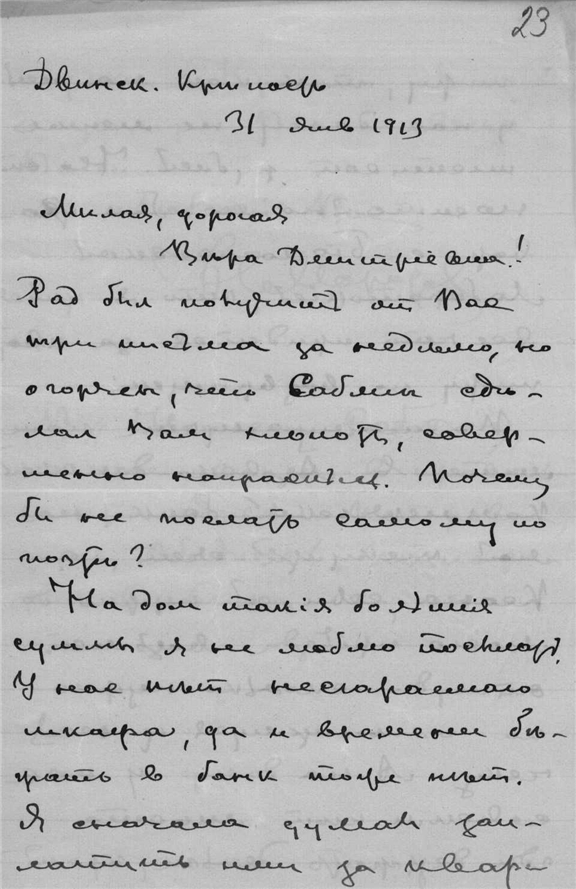 23
Двинск. Крипоср
31 янв 1913
Милая, дорогая
Вѣра Дмитріевна!
Рад был получить от Вас
три письма за недѣлю, но
огорчен, что Саблин сдѣ-
лал Вам хлопот, совер-
шенно напрасных. Почему
бы не послать самому по
почтѣ?
На дом такія большія
суммы я не люблю посылать.
У нас нѣт несгараемаго
шкафа, да и времени бѣ-
гать в банк тоже нѣт.
Я сначала думал зап-
латить ими за квар